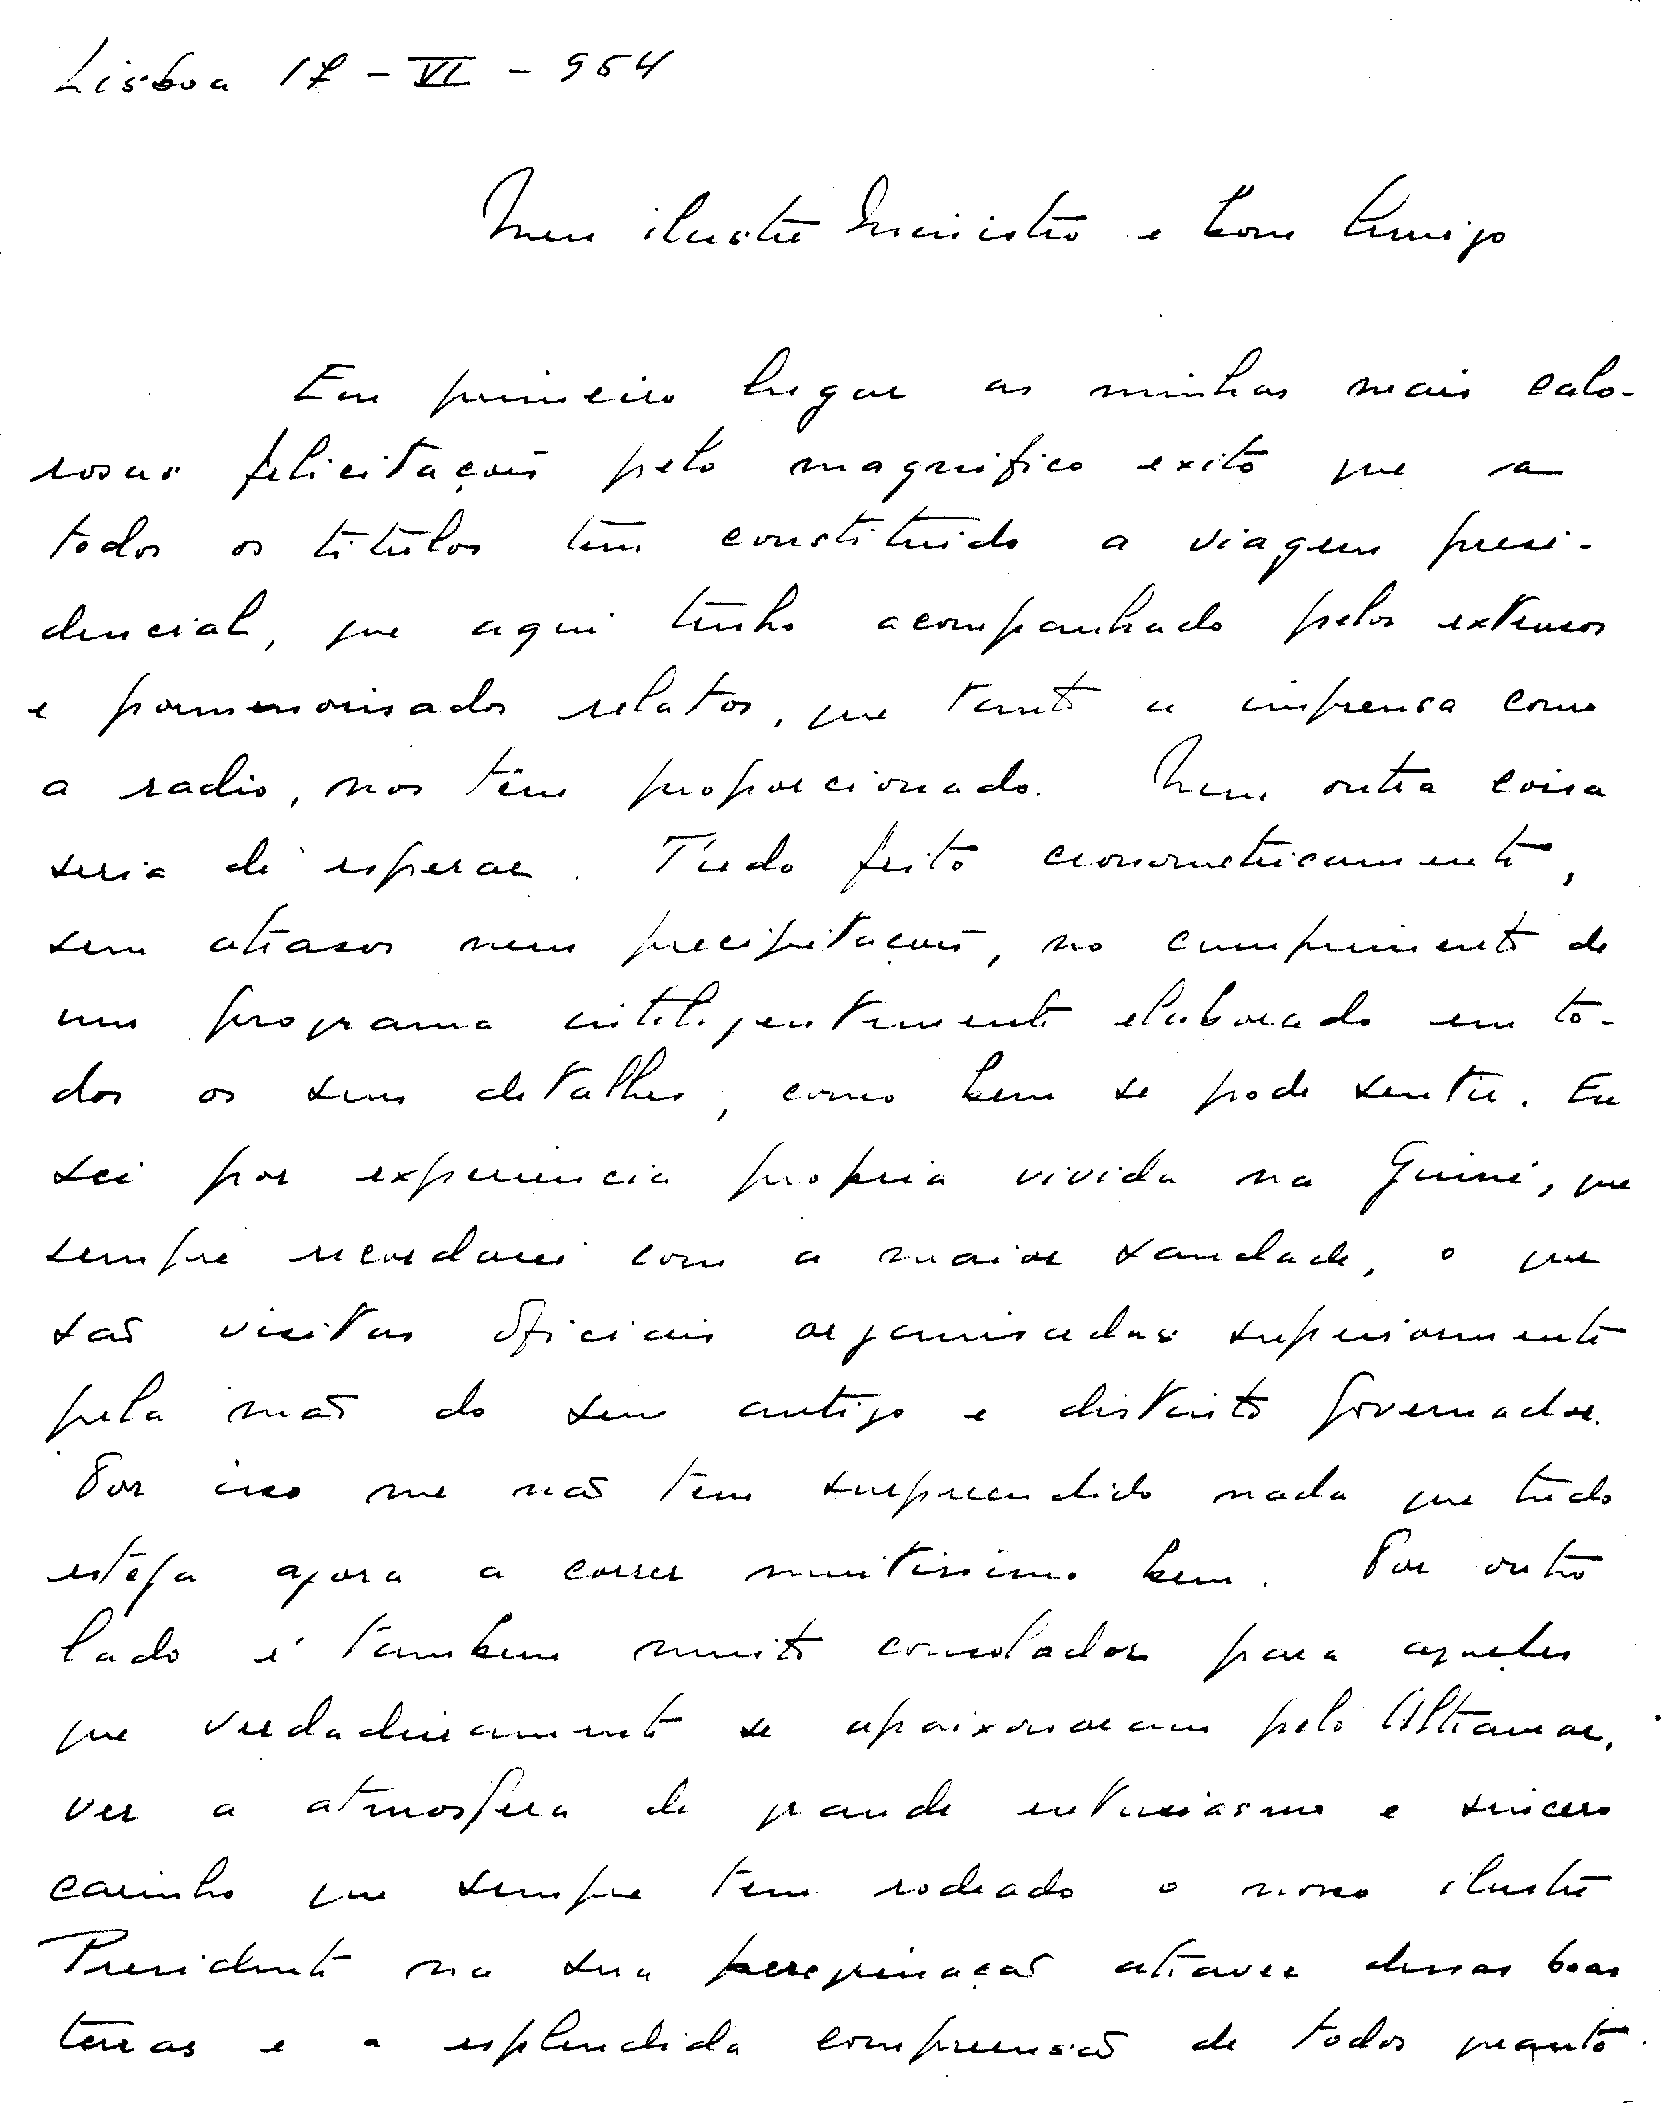 Lisboa 17 - VI - 954
Meu ilustre Ministro e bom Amigo
Em primeiro lugar as minhas mais calo-
rosas felicitações pelo magnifico exito que a
todos os titulos tem constituido a viagem presi-
dencial, que aqui tenho acompanhado pelos extensos
e pormenorisados relatos, que tanto a imprensa como
a radio, nos têm proporcionado. Nem outra coisa
seria de esperar. Tudo feito cronometricamente,
sem atrasos nem precipitações, no cumprimento de
um programa inteligentemente elaborado em to-
dos os seus detalhes, como bem se pode sentir. Eu
sei por experiencia propria vivida na Guiné, que
sempre recordarei com a maior saudade, o que
são visitas oficiais organisadas superiormente
pela mão do seu antigo e distinto Governador.
Por isso me não tem surpreendido nada que tudo
esteja agora a correr muitissimo bem. Por outro
lado é tambem muito consolador para aqueles
que verdadeiramente se apaixonaram pelo Ultramar,
ver a atmosfera de grande entusiasmo e sincero
carinho que sempre tem rodeado o nosso ilustre
Presidente na sua peregrinação atravez dessas boas
terras e a esplendida compreensão de todos quanto